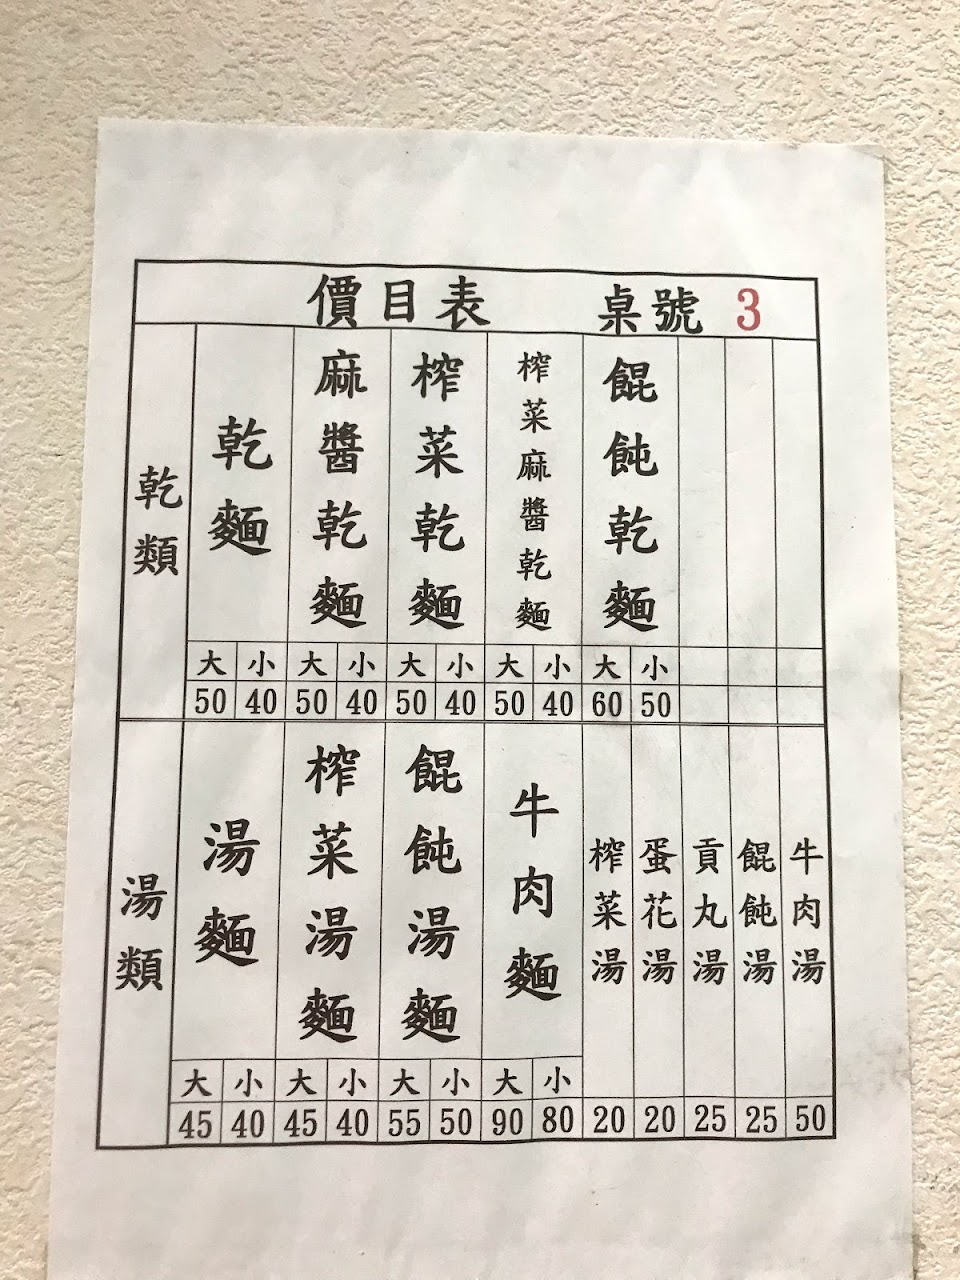 價目表 桌號 3
乾類
乾麵
麻醬乾麵
榨菜乾麵
榨菜麻醬乾麵
餛飩乾麵
大 小 大 小 大 小 大 小 大 小
50 40 50 40 50 40 50 40 60 50
湯類
湯麵
榨菜湯麵
餛飩湯麵
牛肉麵
榨菜湯
蛋花湯
貢丸湯
餛飩湯
牛肉湯
大 小 大 小 大 小 大 小
45 40 45 40 55 50 90 80 20 20 25 25 50